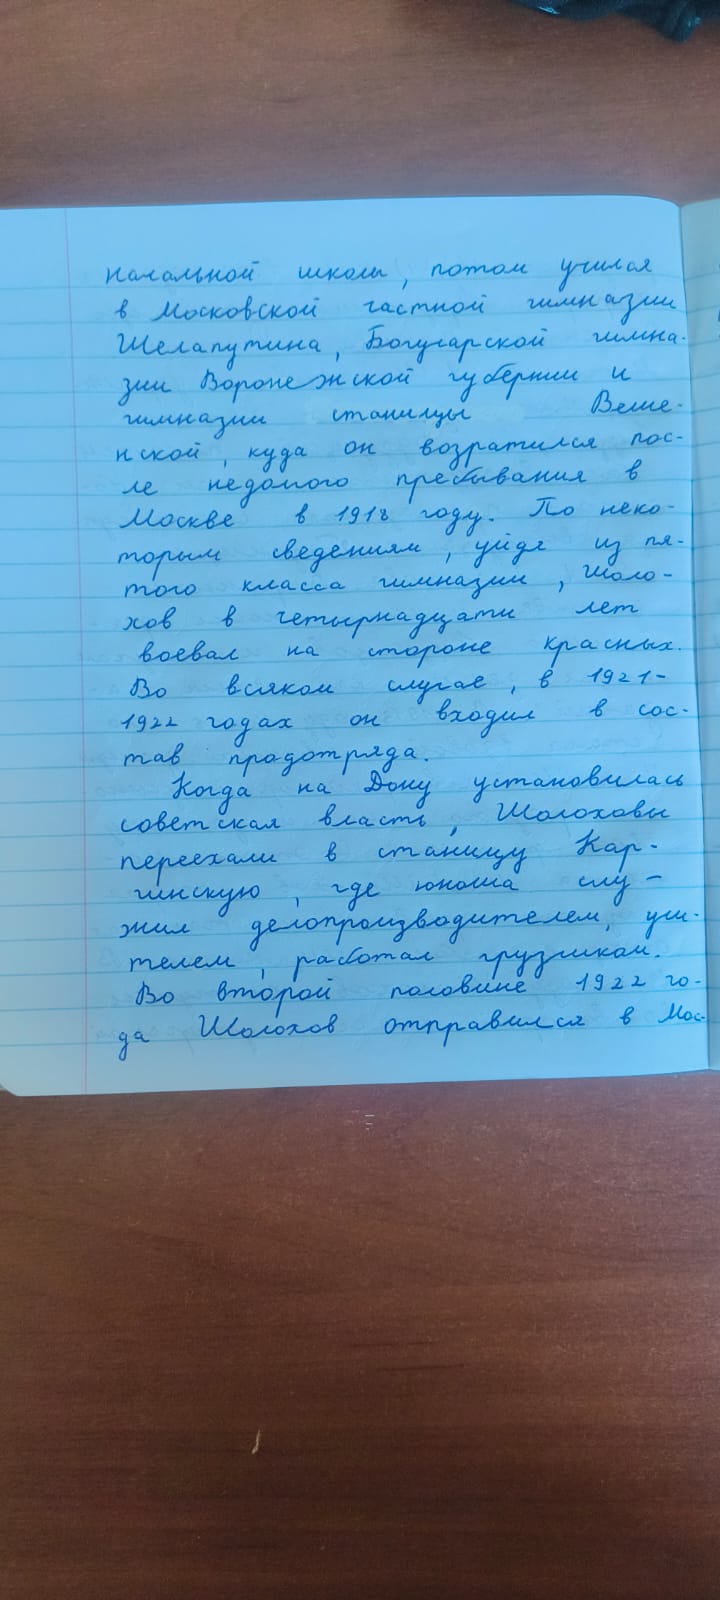 начальной школы, потом учился
в Московской частной гимназии
Шелапутина, Богучарской гимна-
зии Воронежской губернии и
гимназии станицы Веше-
нской, куда он возратился пос-
ле недолгого пребывания в
Москве в 1918 году. По неко-
торым сведениям, уйдя из пя-
того класса гимназии, Шоло-
хов в четырнадцати лет
воевал на стороне красных.
Во всяком случае, в 1921-
1922 годах он входил в сос-
тав продотряда.
Когда на Дону установилась
советская власть, Шолоховы
переехали в станицу Кар-
гинскую, где юноша слу-
жил делопроизводителем, учи-
телем, работал грузчиком.
Во второй половине 1922 го-
да Шолохов отправился в Мос-